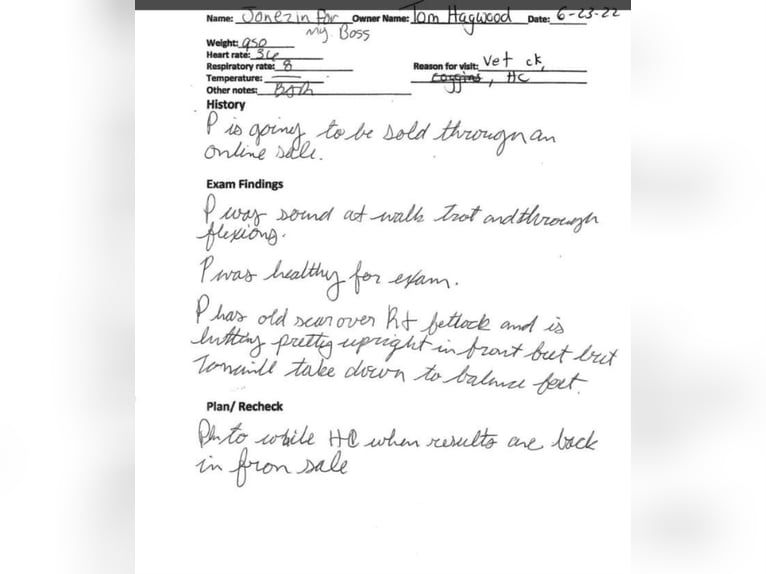 Name: Jonezin for Owner Name: Tom Hagwood Date: 6-23-22
My Boss
Weight: 950
Heart rate: 36
Respiratory rate: 8 Reason for visit: Vet ck,
Temperature: — coggins, HC
Other notes:
History
P is going to be sold through an
online sale.
Exam Findings
P was sound at walk trot and through
flexions.
P was healthy for exam.
P has old scar over Rt fetlock and is
pretty upright in front feet but
Tom will take down to balance feet.
Plan/ Recheck
to while HC when results are back
in from sale